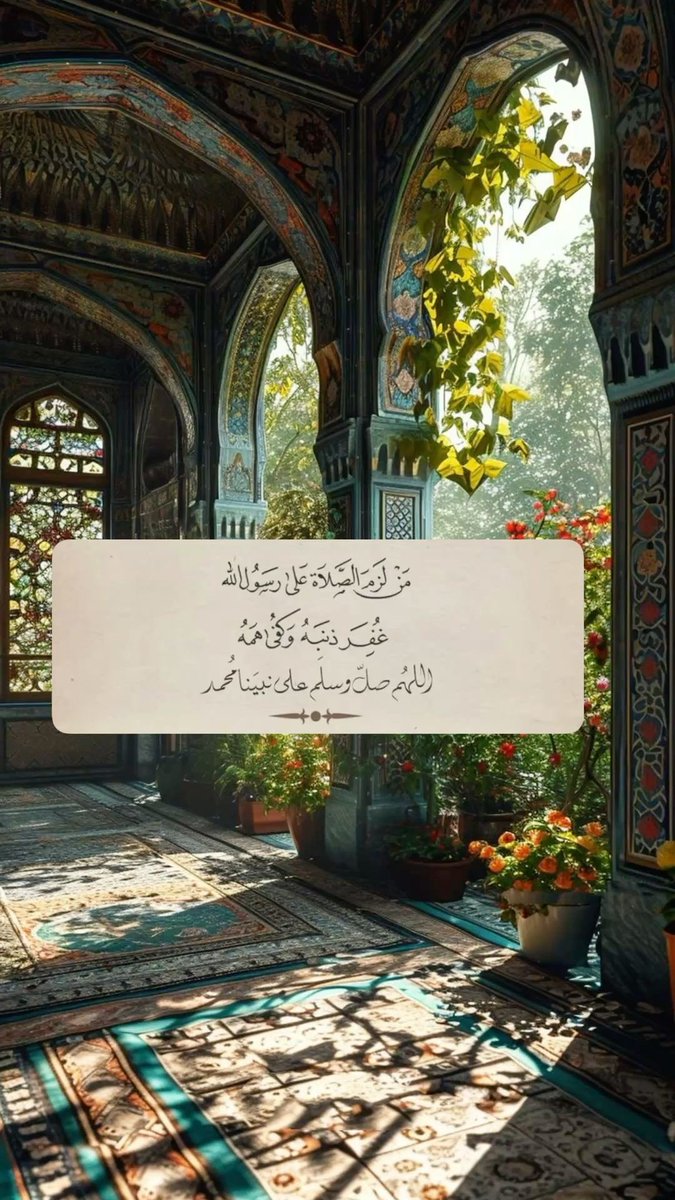 مَنْ لَزِمَ الصَّلَاةَ عَلَى رَسُولِ الله
غُفِرَ ذَنبَهُ وَكُفَى هَمَهُ
اللهُم صلِّ وسلم على نبينا مُحمد